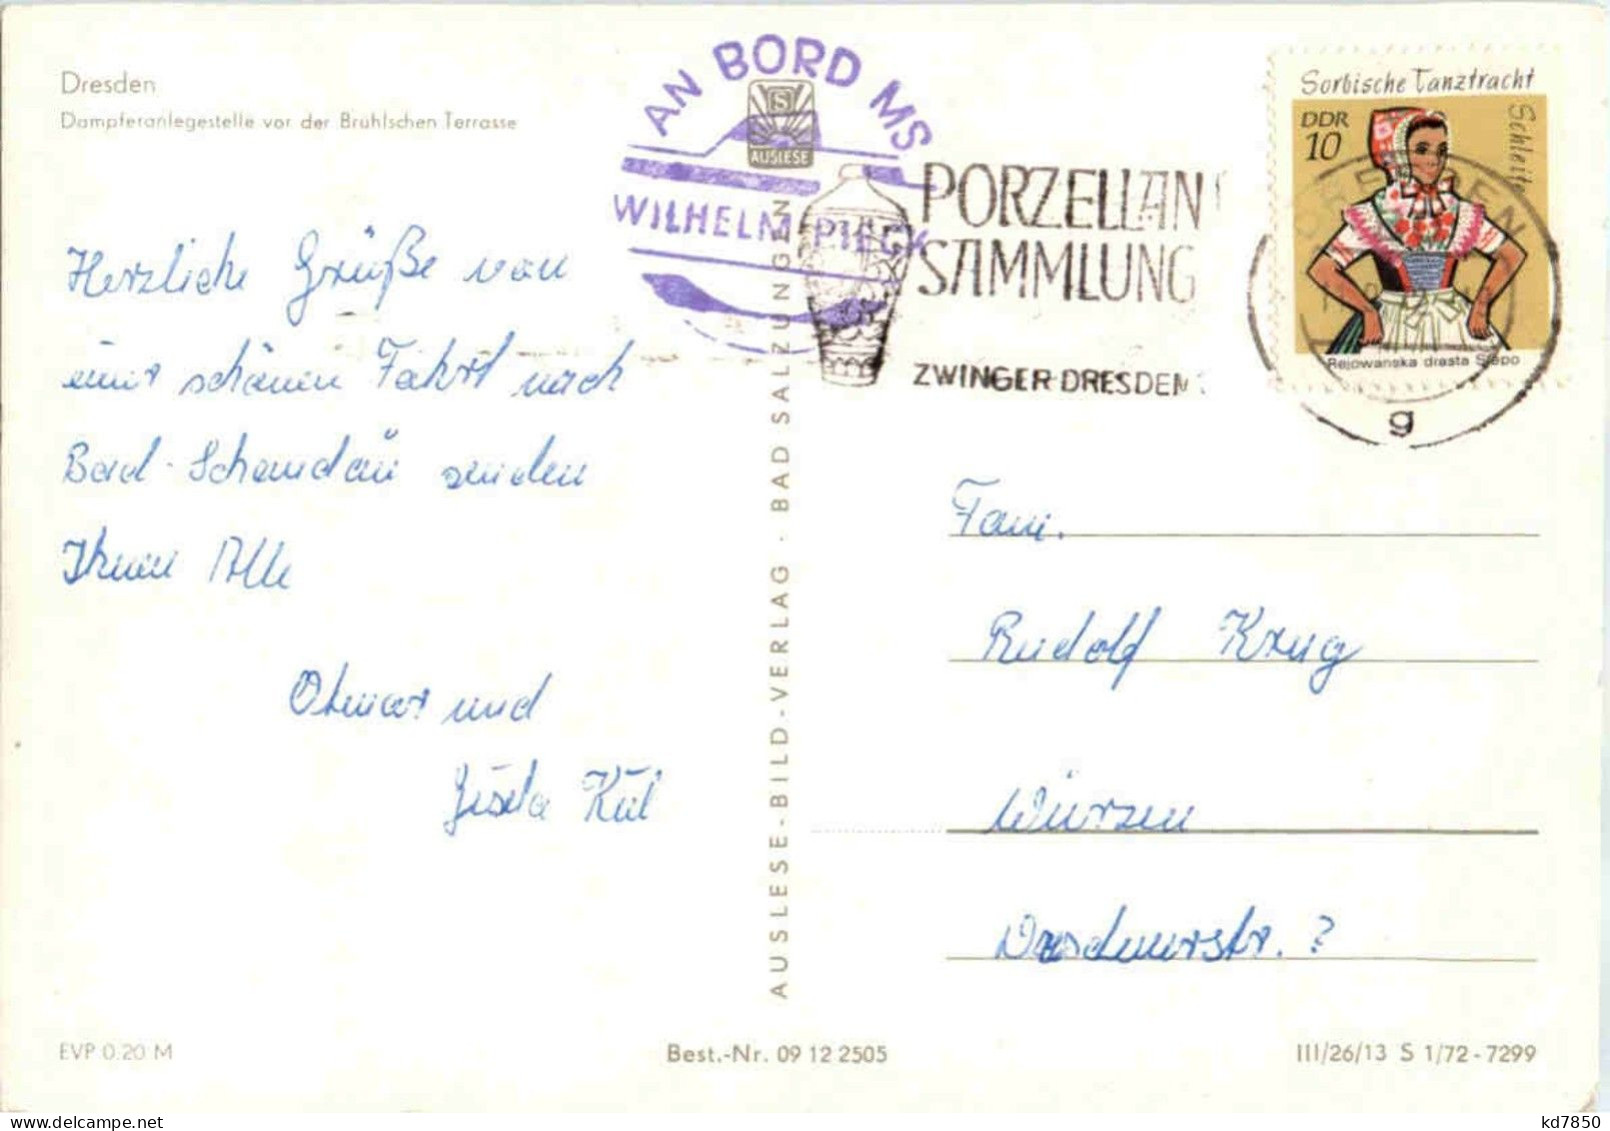 Dresden
Dampferanlegestelle vor der Brühlschen Terrasse
AN BORD MS
WILHELM PIECK
S
AUSLESE
PORZELLAN
SAMMLUNG
ZWINGER DRESDEN
Sorbische Tanztracht
Schleife
DDR
10
Rejowanska drasta Slepo
DRESDEN
g
Herzliche Grüße von
einer schönen Fahrt nach
Bad-Schandau senden
Ihnen Alle
Otmar und
Gisela
Fam.
Rudolf Krug
Wurzen
Dresdenerstr. ?
AUSLESE-BILD-VERLAG · BAD SALZUNGEN
EVP 0.20 M
Best.-Nr. 09 12 2505
III/26/13 S 1/72-7299
kd7850